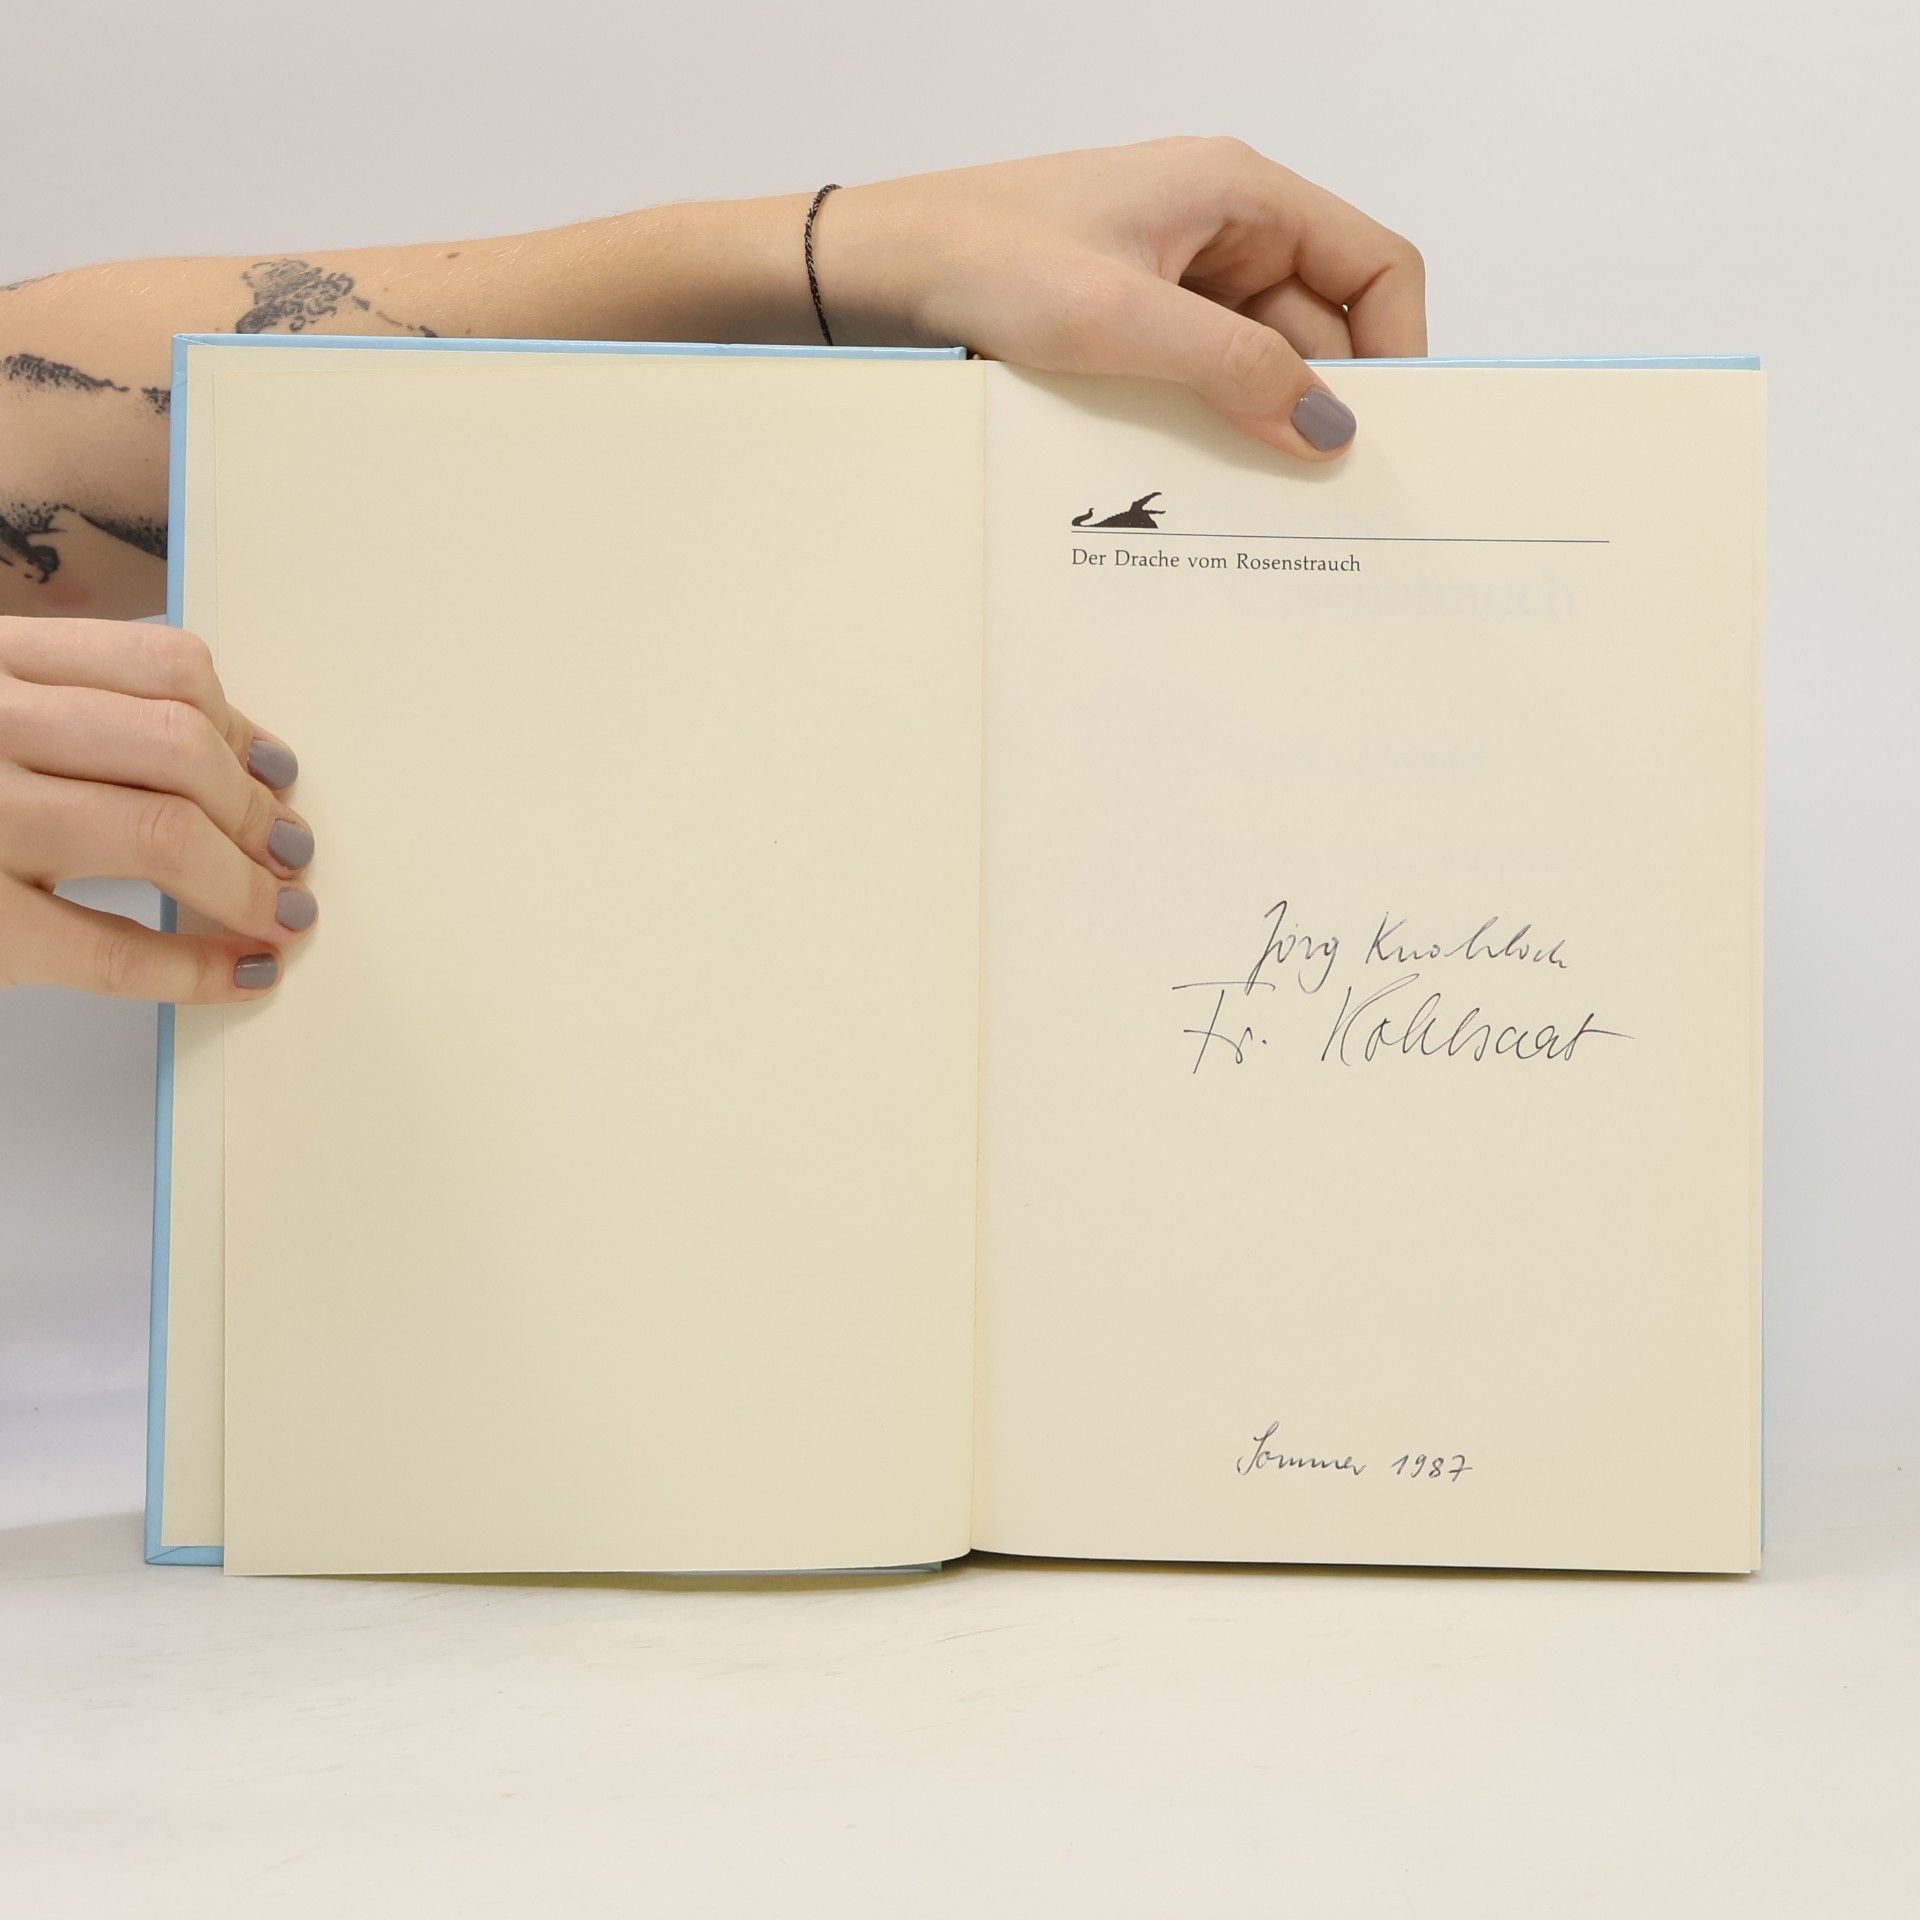 Der Drache vom Rosenstrauch
Jörg Knobloch
Fr. Kohlsaat
Sommer 1987